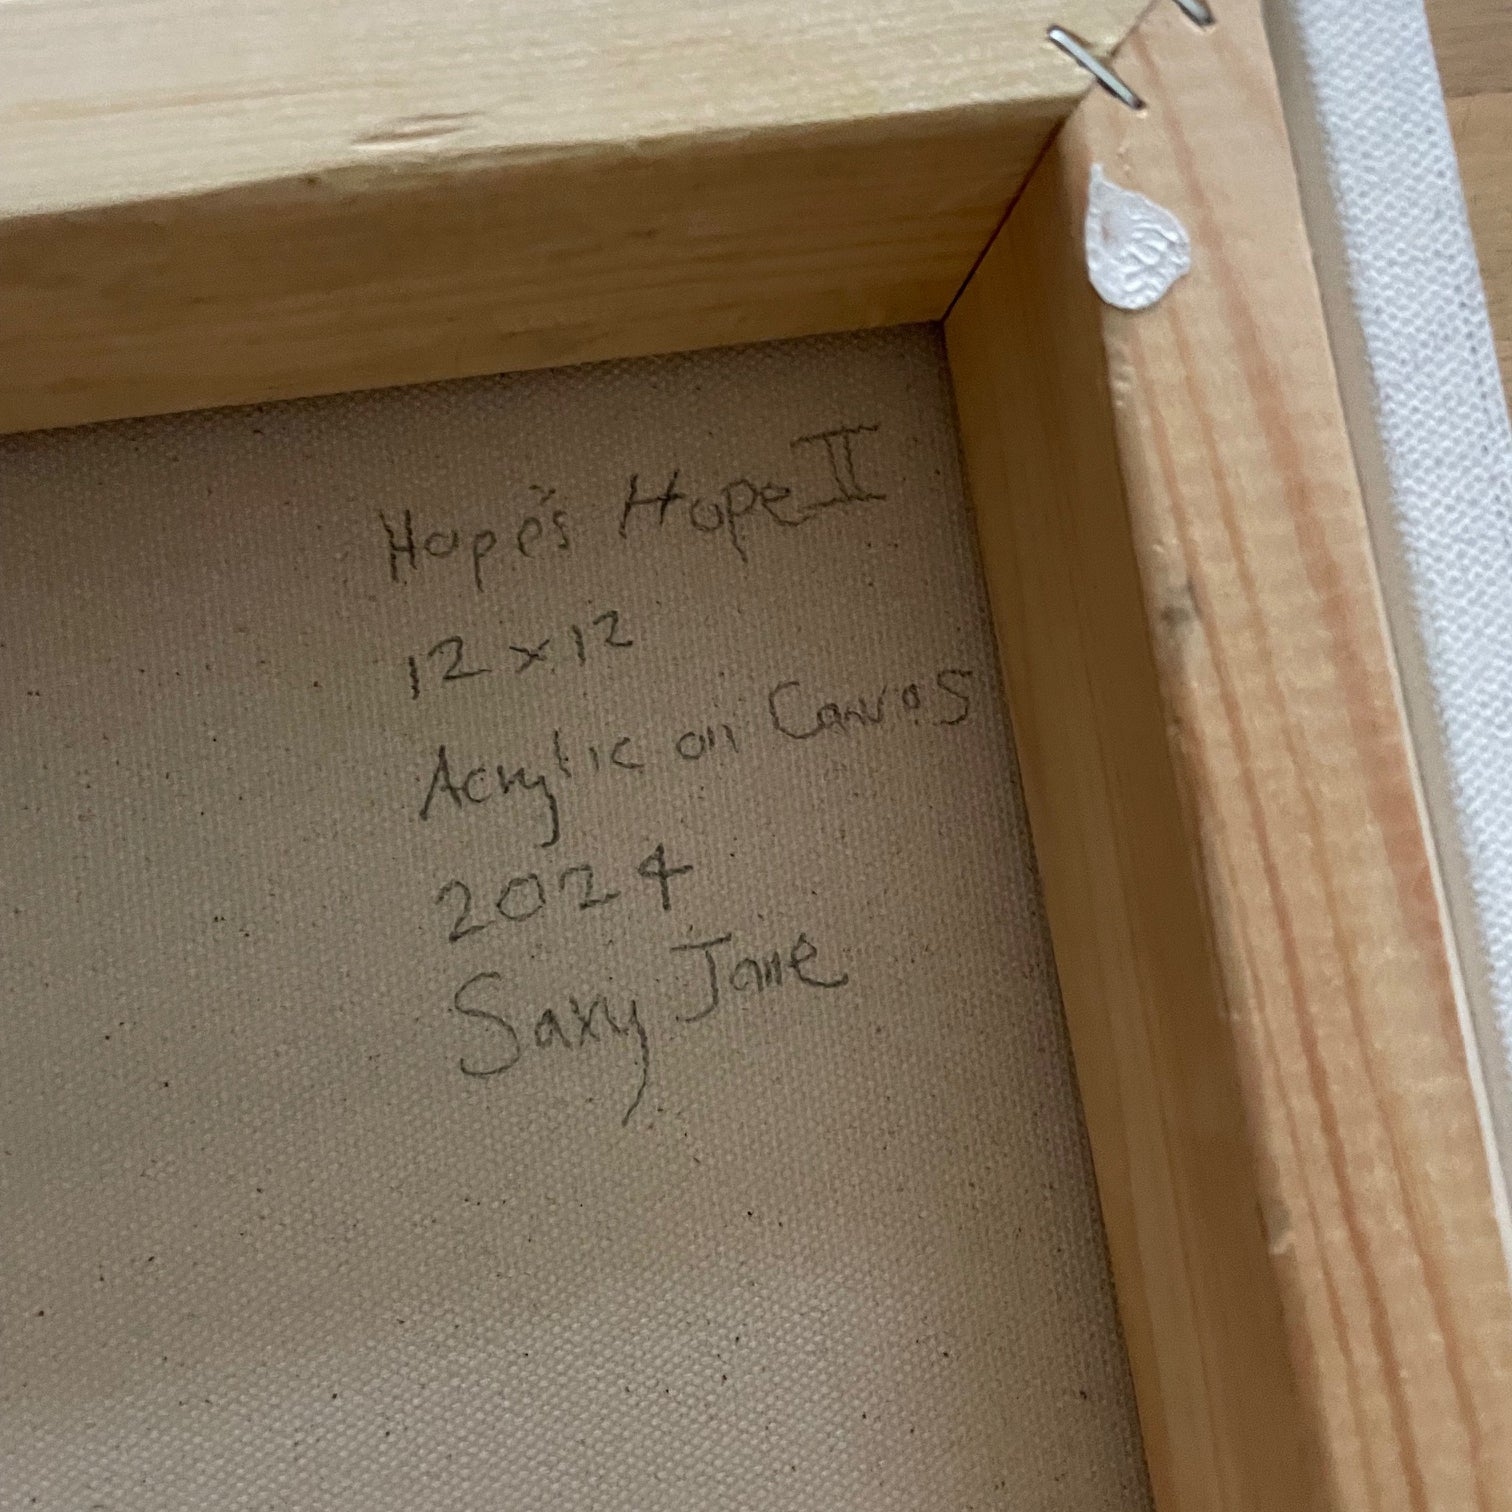 Hope's Hope II
12 x 12
Acrylic on Canvas
2024
Saxy Jane